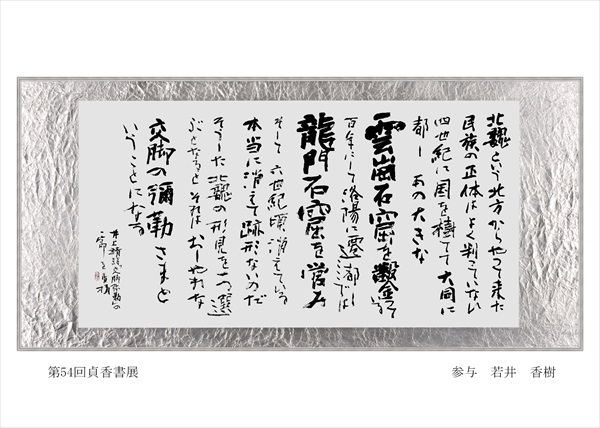 北魏という北方からやって来た
民族の正体はよく判っていない
四世紀に国を樹てて大同に
都し あの大きな
雲崗石窟を鑿金って
百年にして洛陽に遷都し
龍門石窟を営み
そして六世紀頃消えている
本当に消えて跡形ないのだ
そうした北魏の形見を一つ選
ぶとなるとそれはおしゃれな
交脚の彌勒さまと
いうことになる
井上靖 交脚弥勒
第54回貞香書展
参与 若井 香樹